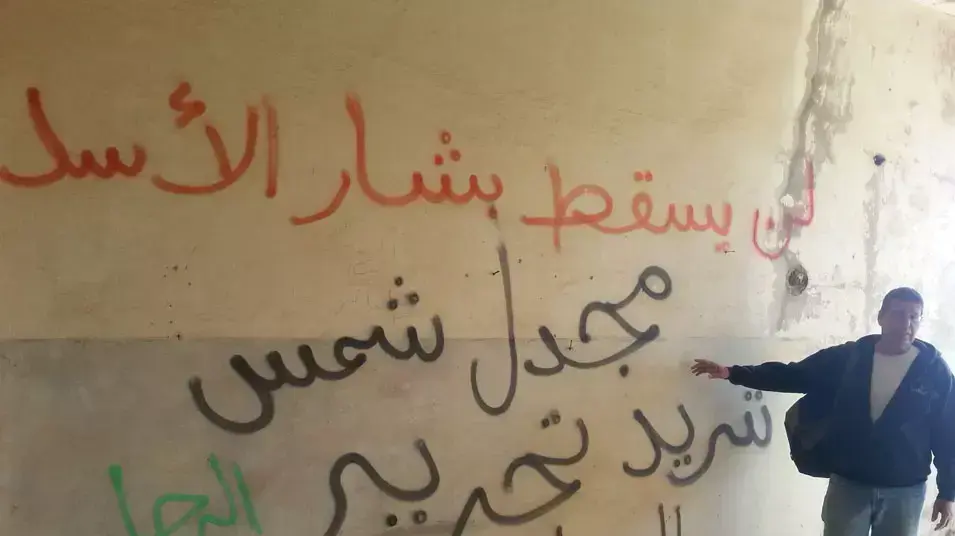 لن يسقط بشار الأسد
مجدل شمس
تريد تحرير